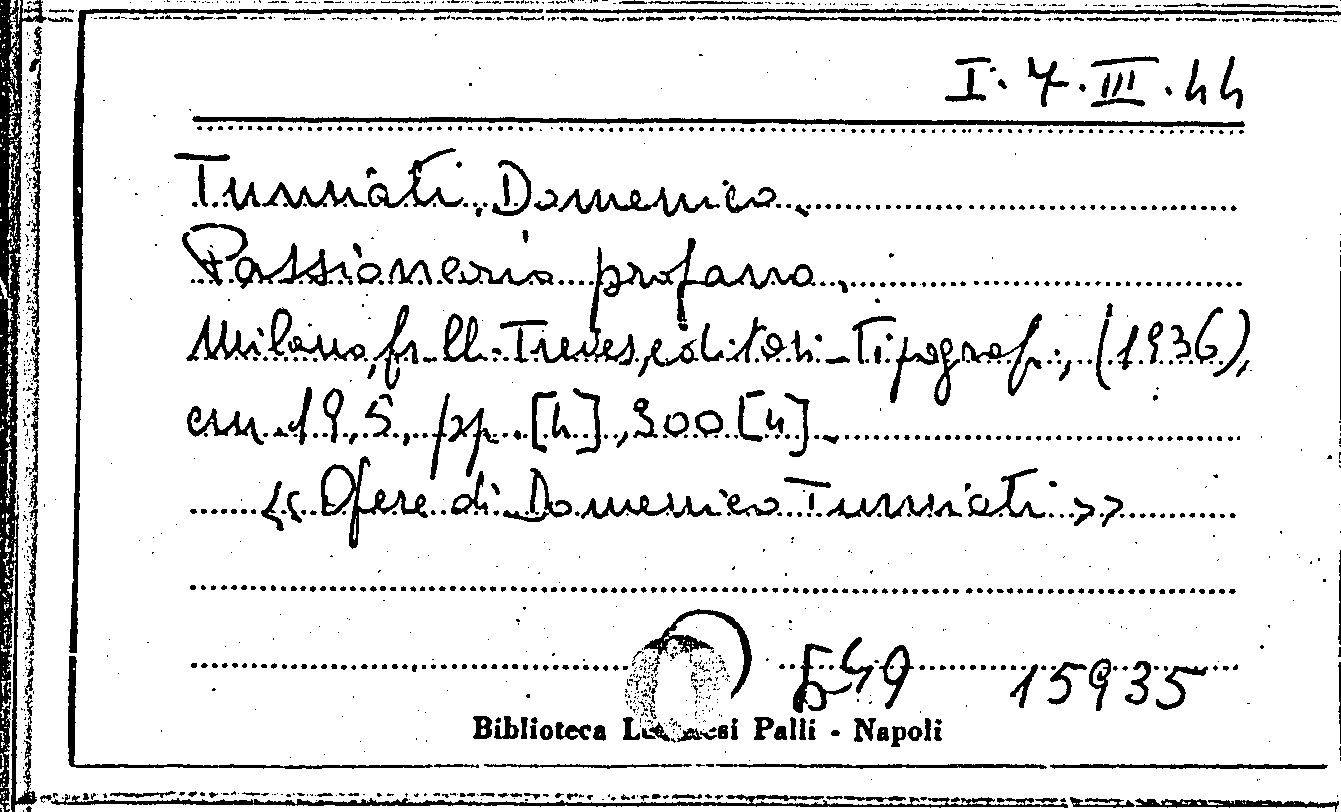 I. 7. III. 44
Tumiati, Domenico.
Passionario profano.
Milano, fr.lli Treves, editori-tipograf., (1936),
cm. 19,5, pp. [4], 300 [4].
<< Opere di Domenico Tumiati >>
549 15935
Biblioteca Palli - Napoli